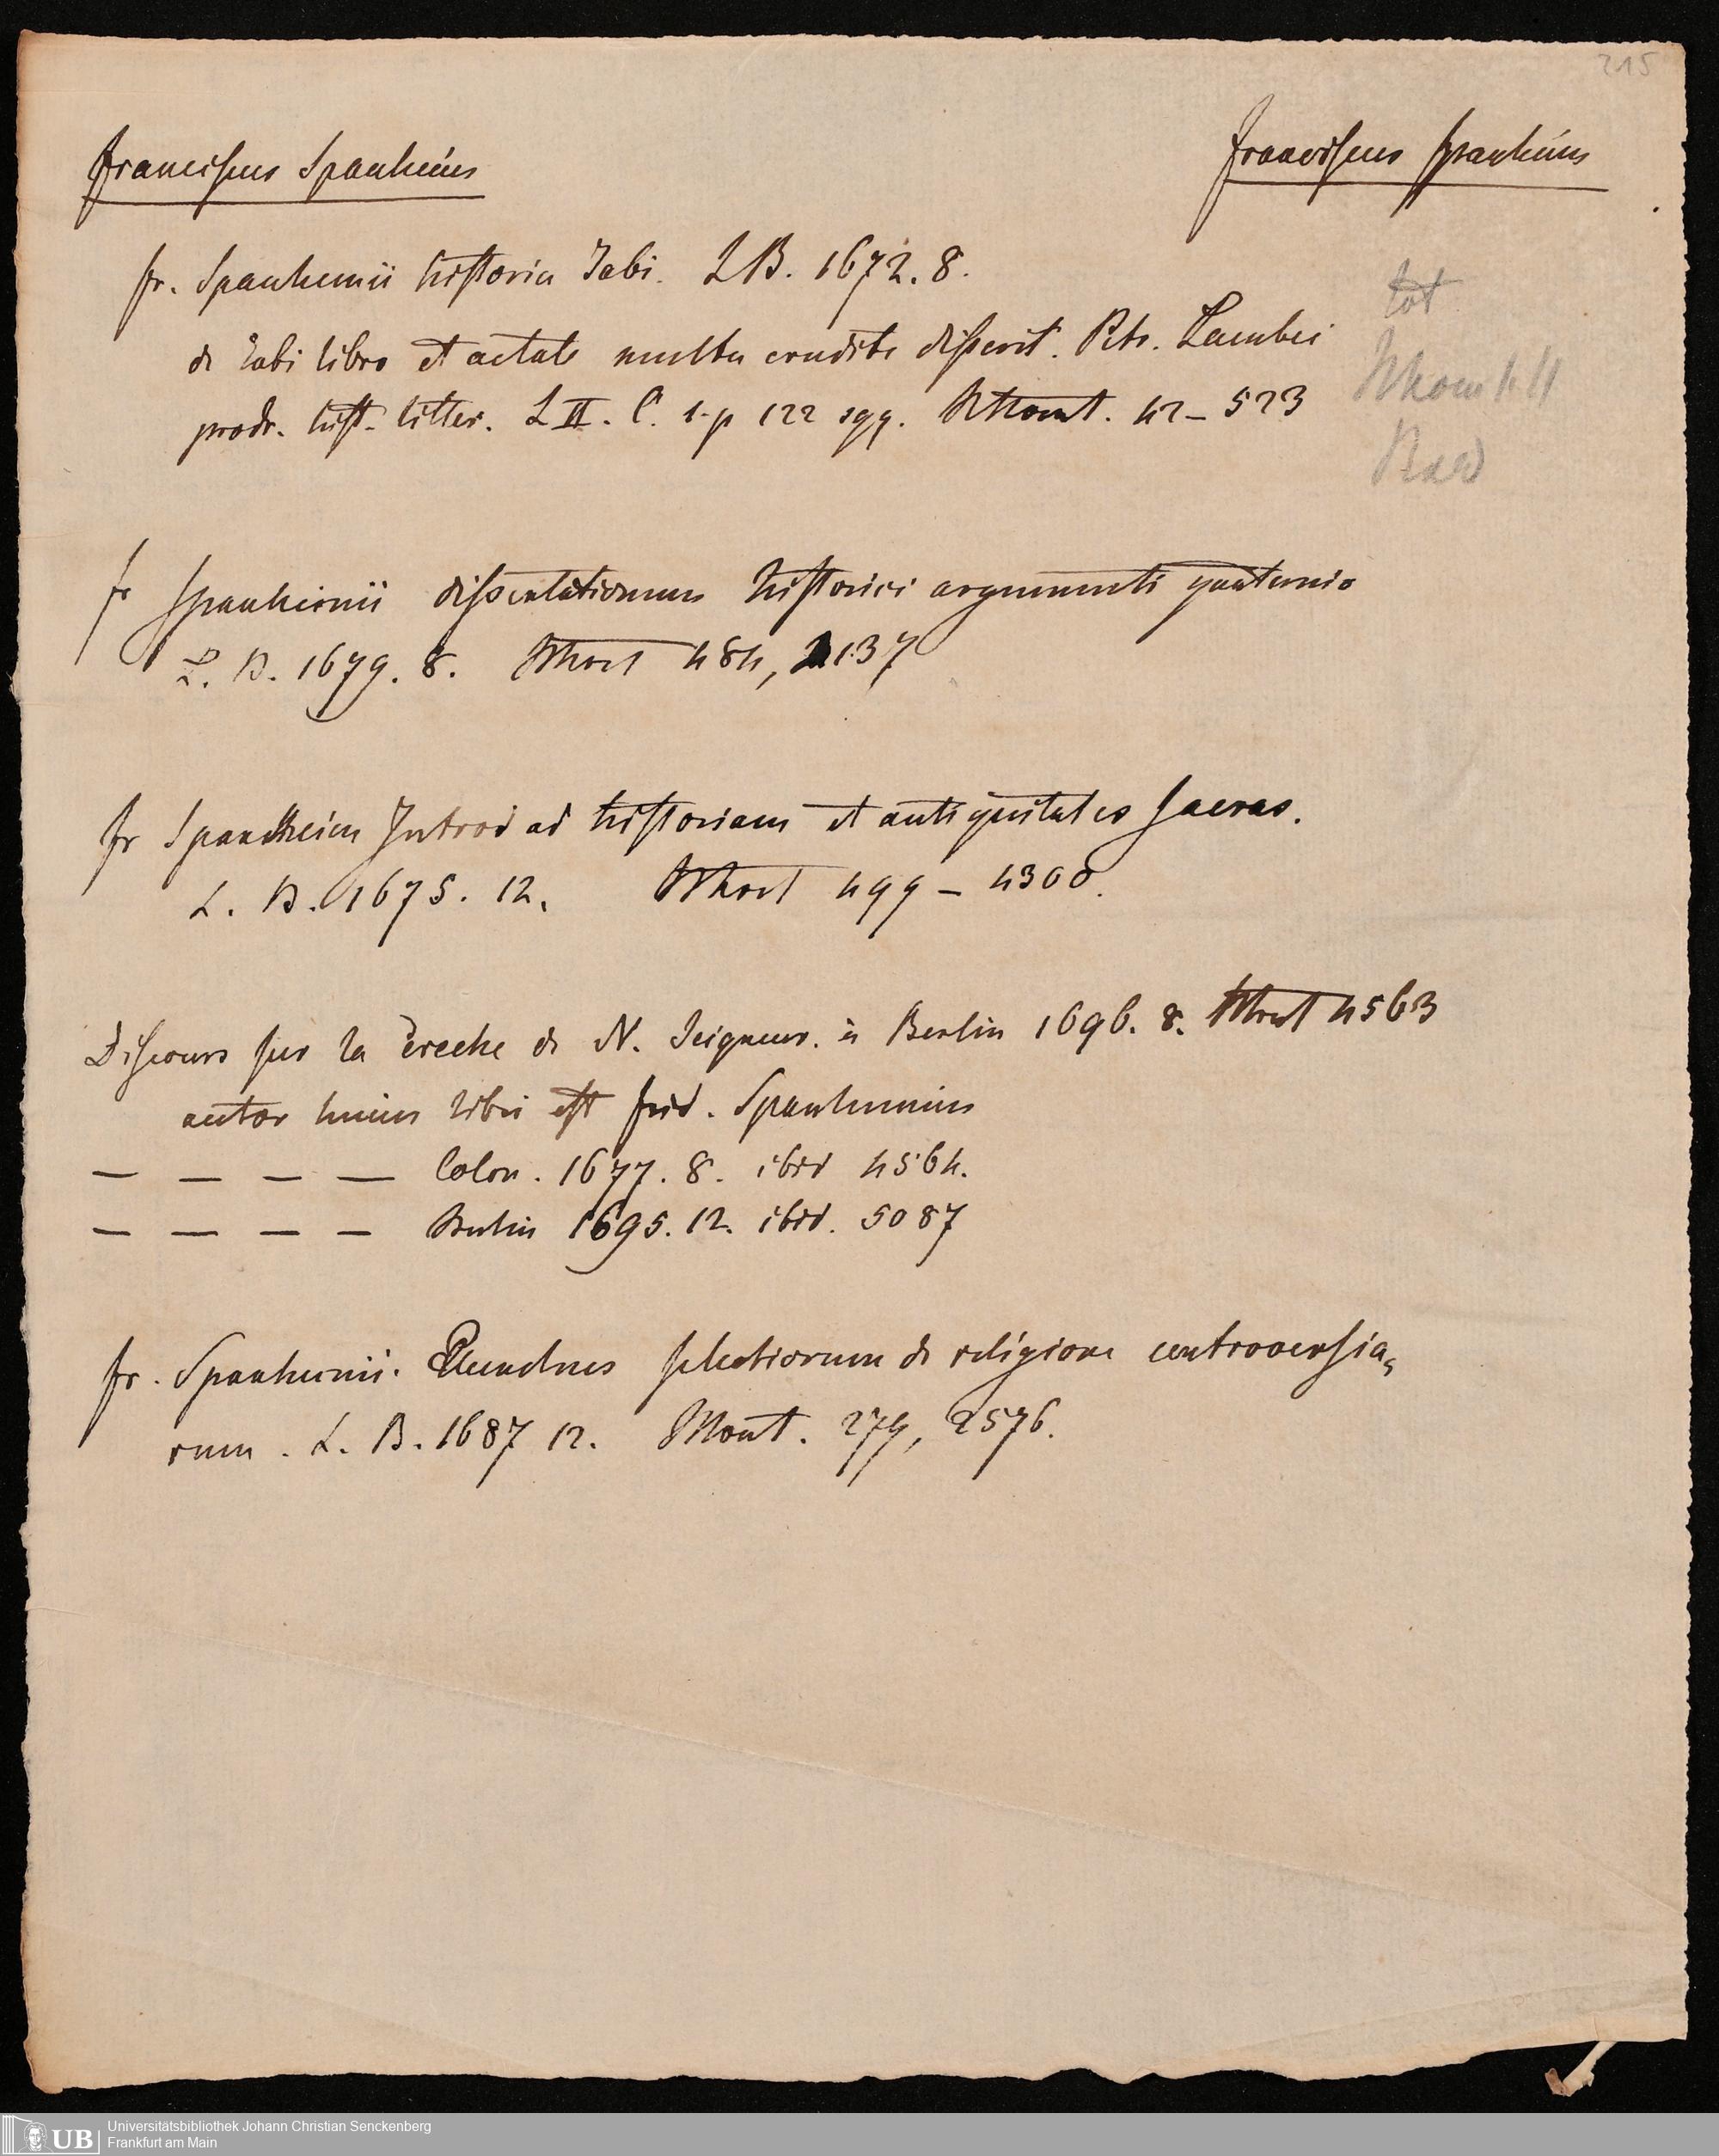 215
Franciscus Spanheius Franciscus Spanheius
Fr. Spanhemii historia Jobi. LB. 1672. 8.
de Iobi libro et aetate multa erudite disserit. Petr. Lambeci
prodr. hist. litter. L II. C. 1. p 122 sqq. 42–523
tot
Fr Spanhemii dissertationum historici argumenti quaternio
L. B. 1679. 8. 484, 2137
Fr Spanheim Introd ad historiam et antiquitates sacras.
L. B. 1675. 12. 499 – 4300.
Discours sur la Creche de N. Seigneur. à Berlin 1696. 8. 4563
autor huius libri est Frid. Spanhemius
— — — — Colon. 1677. 8. ibid 4564.
— — — — Berlin 1695. 12. ibid. 5087
Fr. Spanhemii. Elenchus selectiorum de religione controversia,
rum. L. B. 1687 12. 279, 2576.
UB Universitätsbibliothek Johann Christian Senckenberg
Frankfurt am Main